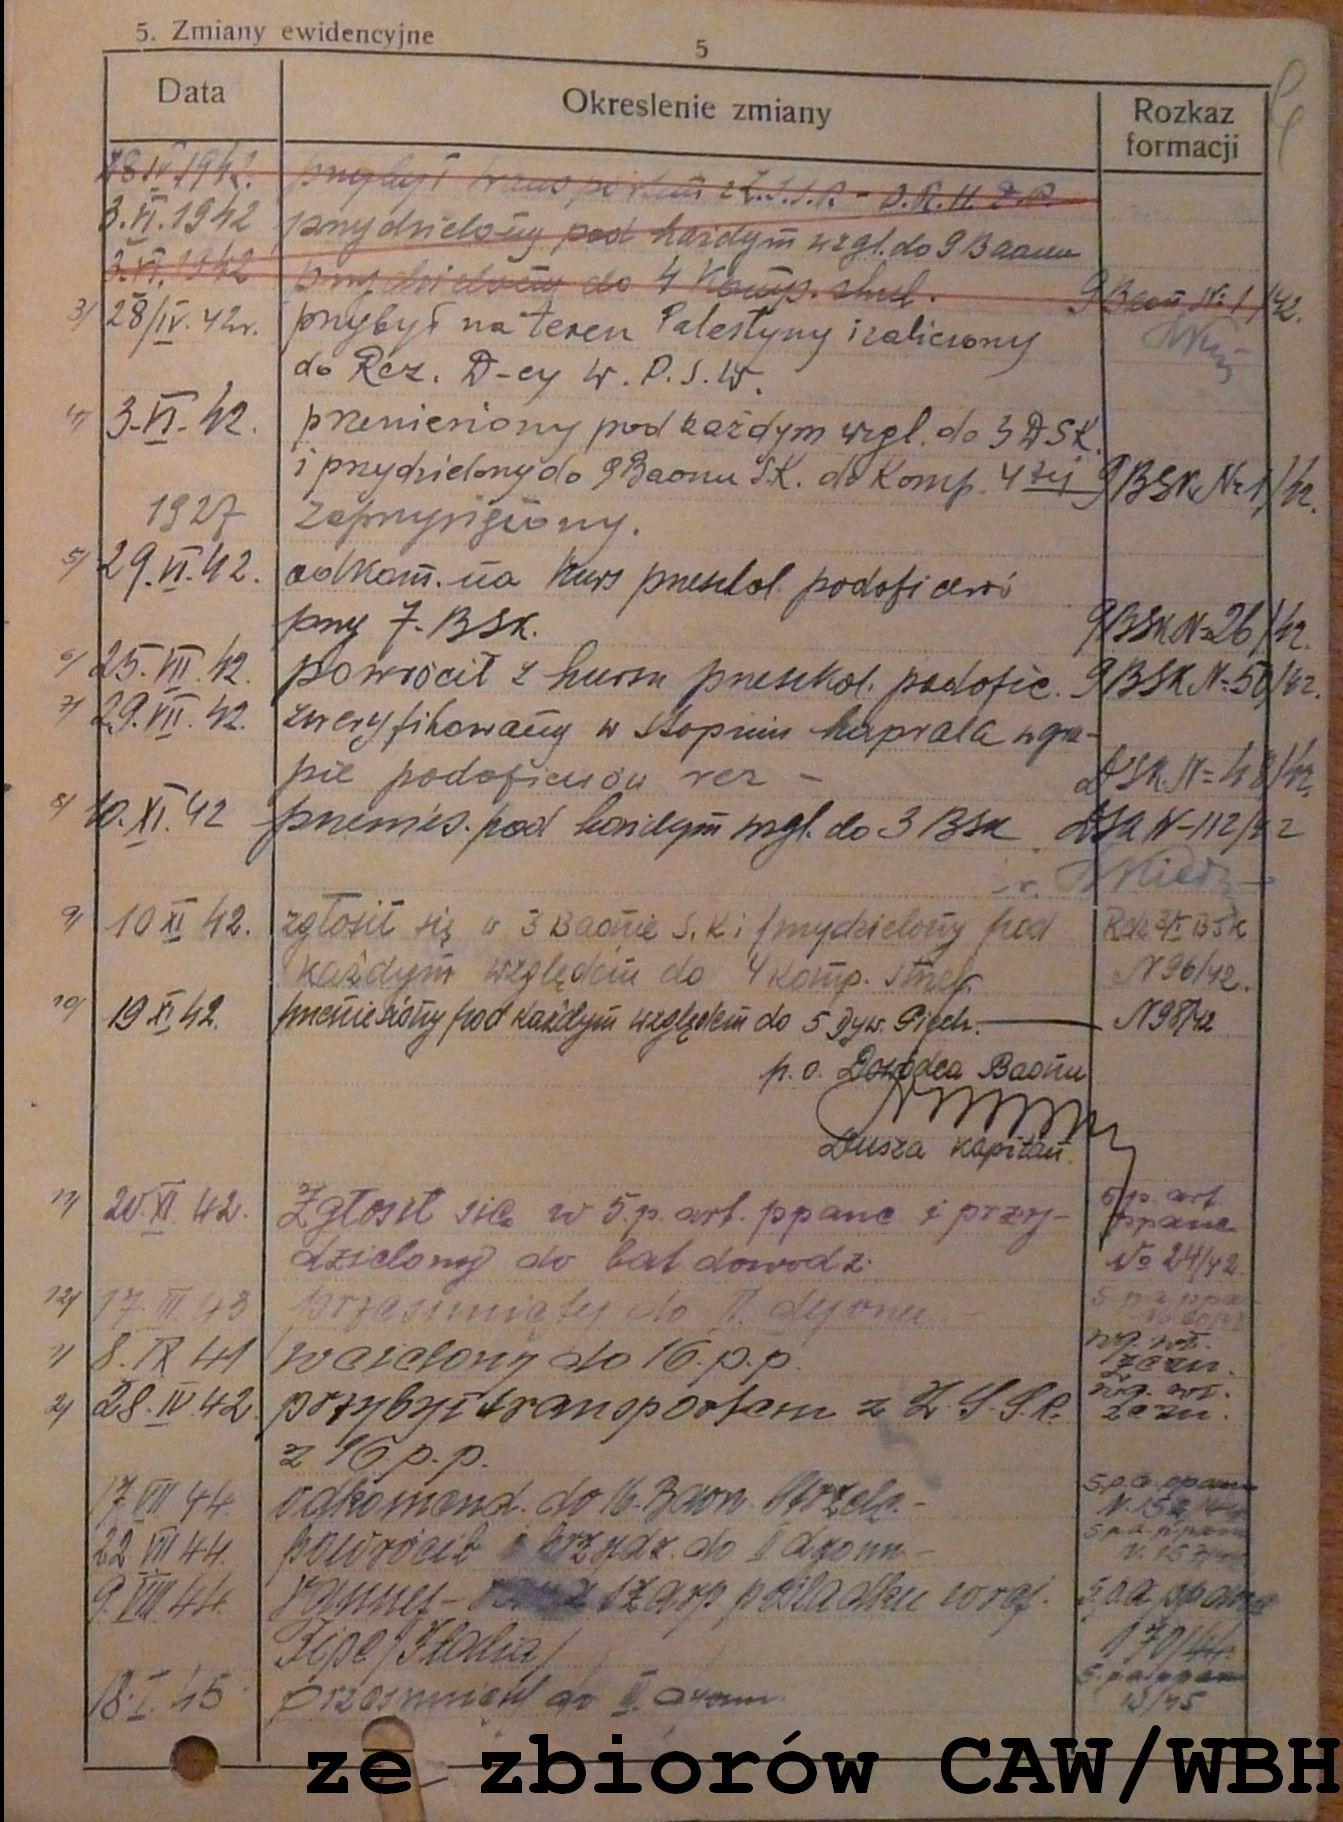 5. Zmiany ewidencyjne
5
Data Okreslenie zmiany Rozkaz formacji
28 IV 1942. przybył transportem z Z.S.S.R. - O.R.H.
3.VI.1942 przydzielony pod każdym wzgl. do 9 Baonu
3.VI.1942 przydzielony do 4 Komp. 9 Baon № 1/42.
3/ 28/IV.42r. przybył na teren Palestyny i zaliczony
do Rez. D-cy W.P.S.W.
4/ 3.VI.42. przeniesiony pod każdym wzgl. do 3 DSK.
i przydzielony do 9 Baonu SK. do Komp. 4tej 9 BSK Nr 1/42.
1927 zaprzysiężony.
5/ 29.VI.42. odkom. na kurs przeszkol. podoficerów
przy 7. BSK. 9 BSK N=26/42.
6/ 25.VII.42. powrócił z kursu przeszkol. podofic. 9 BSK N=50/42.
7/ 29.VII.42. zweryfikowany w stopniu kaprala w gru-
pie podoficerów rez - DSK. N=48/42.
8/ 10.XI.42 przenies. pod każdym wzgl. do 3 BSK DSK N-112/42
9/ 10 XI 42. zgłosił się w 3 Baonie S.K i przydzielony pod Rozk. 3 BSK
każdym względem do 4 komp. strzel. N 96/42.
10/ 19 XI 42. przeniesiony pod każdym względem do 5 Dyw. Piech. N 98/42
p.o. Dowódca Baonu
Dusza kapitan.
11/ 20.XI.42. Zgłosił się w 5.p.art.ppanc i przy- 5 p. art ppanc
dzielony do bat dowodz. No 24/42.
12/ 17.III.43 przesunięty do II. dyonu -
1/ 8.IX 41 wcielony do 16.p.p. wg. wł. zezn.
2/ 28.IV.42. przybył transportem z Z.S.S.R. wg. wł. zezn.
z 16 p.p.
17 VII 44. odkomend. do 16. Baon. Strzelc. - 5.p.a.ppanc N. 152/44
22 VII 44. powrócił i przydz. do II dyonu - 5 pa ppanc
9.VIII.44. ranny - szarp pośladku w rej. 5 p.a. ppanc
/Italia/ 170/44.
18.I.45 przesunięty do II. dyonu. 5 pa ppanc 15/45
ze zbiorów CAW/WBH